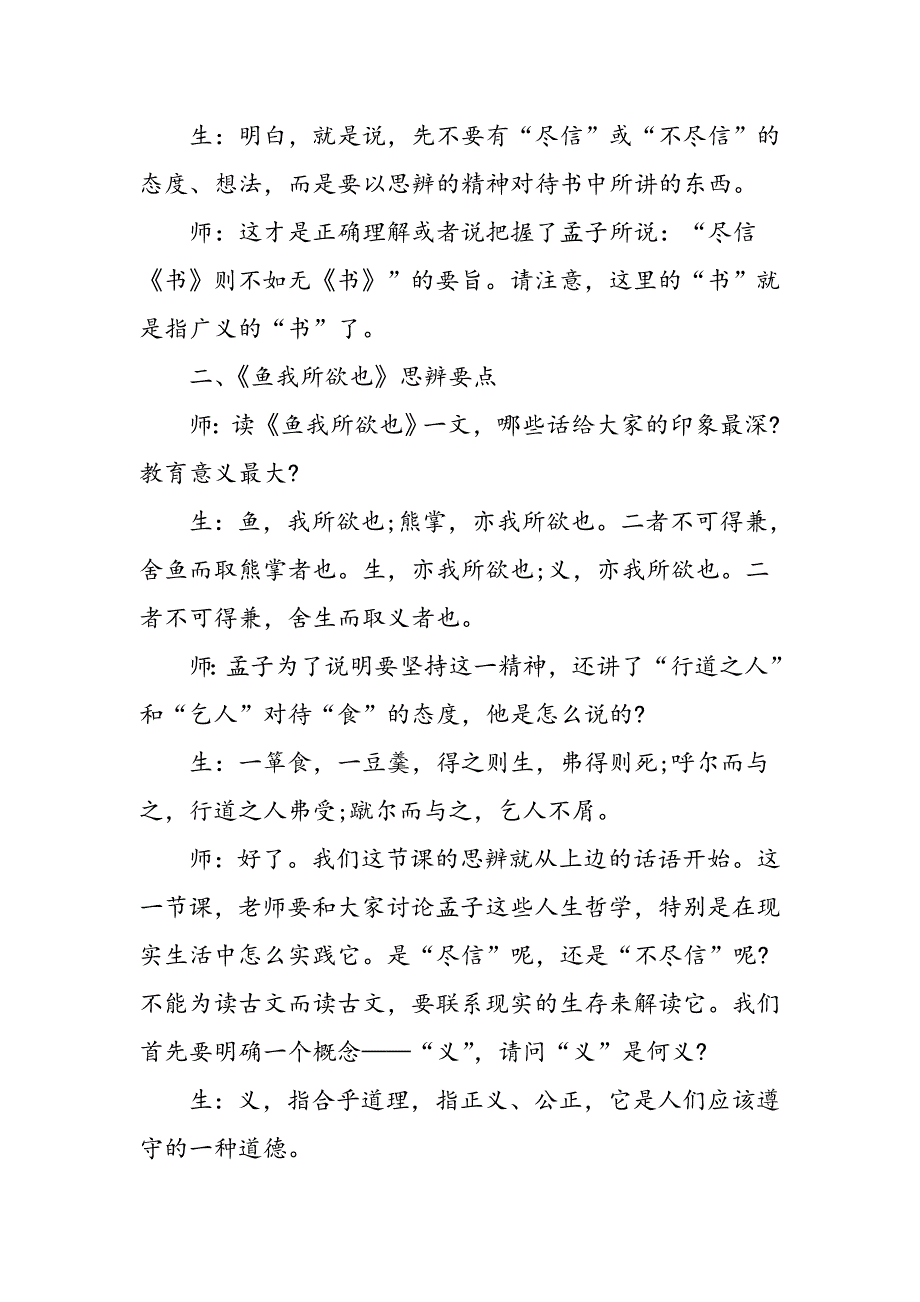 生：明白，就是说，先不要有“尽信”或“不尽信”的
态度、想法，而是要以思辨的精神对待书中所讲的东西。
师：这才是正确理解或者说把握了孟子所说：“尽信
《书》则不如无《书》”的要旨。请注意，这里的“书”就
是指广义的“书”了。
二、《鱼我所欲也》思辨要点
师：读《鱼我所欲也》一文，哪些话给大家的印象最深?
教育意义最大?
生：鱼，我所欲也;熊掌，亦我所欲也。二者不可得兼，
舍鱼而取熊掌者也。生，亦我所欲也;义，亦我所欲也。二
者不可得兼，舍生而取义者也。
师：孟子为了说明要坚持这一精神，还讲了“行道之人”
和“乞人”对待“食”的态度，他是怎么说的?
生：一箪食，一豆羹，得之则生，弗得则死;呼尔而与
之，行道之人弗受;蹴尔而与之，乞人不屑。
师：好了。我们这节课的思辨就从上边的话语开始。这
一节课，老师要和大家讨论孟子这些人生哲学，特别是在现
实生活中怎么实践它。是“尽信”呢，还是“不尽信”呢?
不能为读古文而读古文，要联系现实的生存来解读它。我们
首先要明确一个概念——“义”，请问“义”是何义?
生：义，指合乎道理，指正义、公正，它是人们应该遵
守的一种道德。